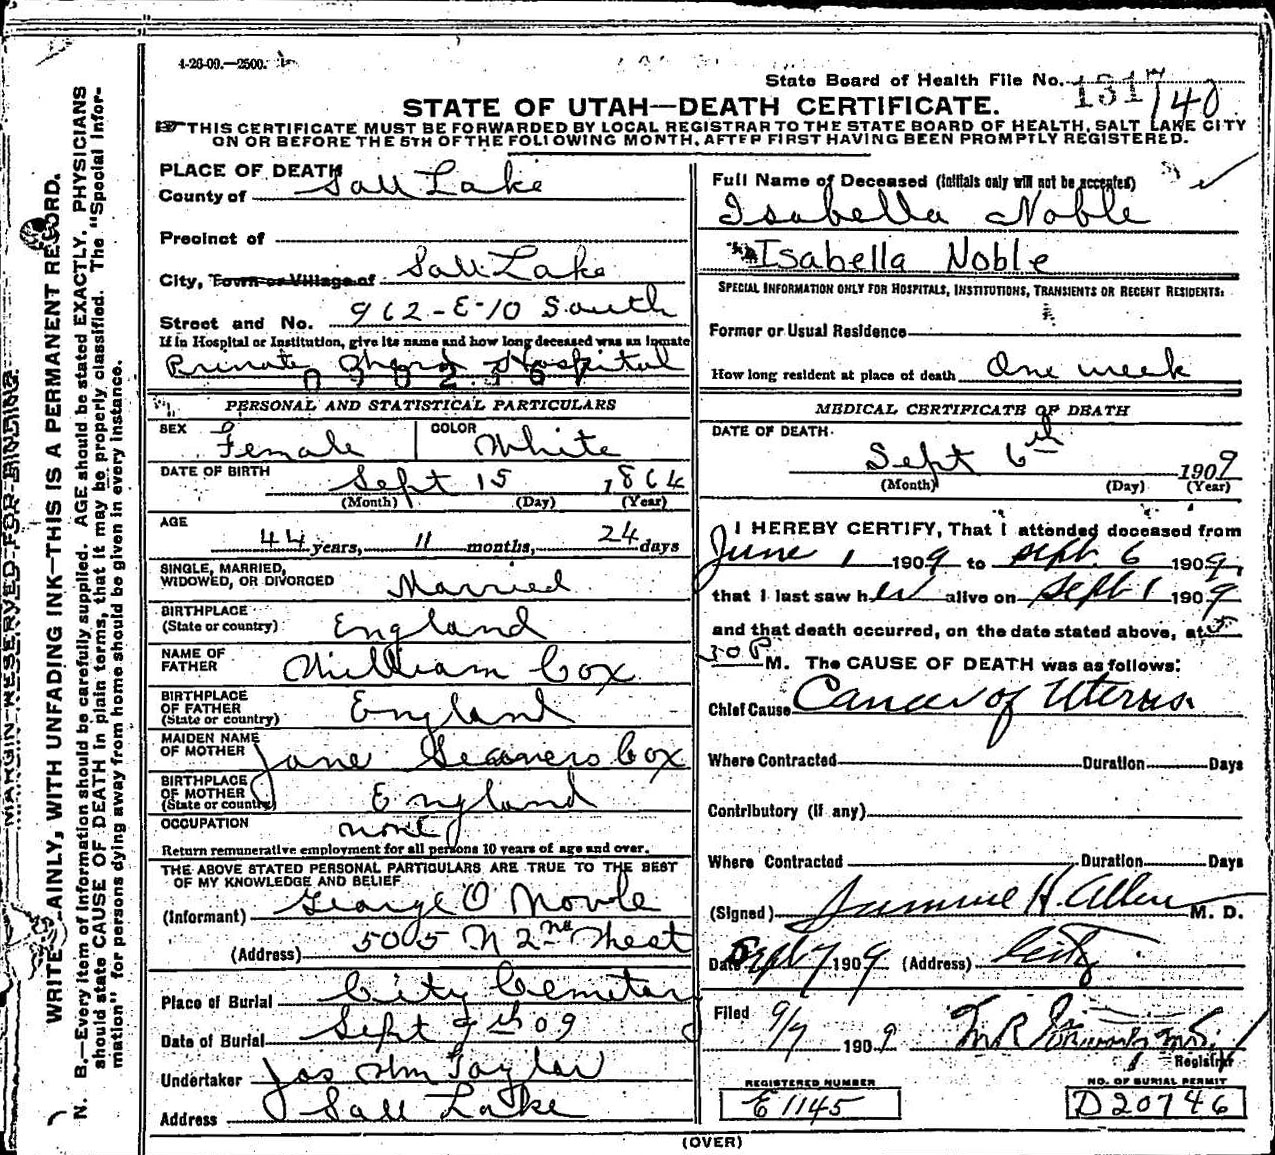 4-26-09.—2500.
State Board of Health File No. 1317/40
STATE OF UTAH—DEATH CERTIFICATE.
THIS CERTIFICATE MUST BE FORWARDED BY LOCAL REGISTRAR TO THE STATE BOARD OF HEALTH, SALT LAKE CITY
ON OR BEFORE THE 5TH OF THE FOLLOWING MONTH, AFTER FIRST HAVING BEEN PROMPTLY REGISTERED.
MARGIN RESERVED FOR BINDING.
WRITE PLAINLY, WITH UNFADING INK—THIS IS A PERMANENT RECORD.
N. B.—Every item of information should be carefully supplied. AGE should be stated EXACTLY. PHYSICIANS
should state CAUSE OF DEATH in plain terms, that it may be properly classified. The "Special Infor-
mation" for persons dying away from home should be given in every instance.
PLACE OF DEATH
County of Salt Lake
Precinct of
City, Town or Village of Salt Lake
Street and No. 962-E-10 South
If in Hospital or Institution, give its name and how long deceased was an inmate
Private Hospital
PERSONAL AND STATISTICAL PARTICULARS
SEX Female COLOR White
DATE OF BIRTH Sept 15 1864
(Month) (Day) (Year)
AGE
44 years, 11 months, 24 days
SINGLE, MARRIED,
WIDOWED, OR DIVORCED Married
BIRTHPLACE
(State or country) England
NAME OF
FATHER William Cox
BIRTHPLACE
OF FATHER
(State or country) England
MAIDEN NAME
OF MOTHER Jane Cox
BIRTHPLACE
OF MOTHER
(State or country) England
OCCUPATION none
Return remunerative employment for all persons 10 years of age and over.
THE ABOVE STATED PERSONAL PARTICULARS ARE TRUE TO THE BEST
OF MY KNOWLEDGE AND BELIEF
(Informant) George O Noble
(Address) 505 N 2nd West
Place of Burial City Cemetery
Date of Burial Sept 9th 09
Undertaker Jos Wm Taylor
Address Salt Lake
Full Name of Deceased (initials only will not be accepted)
Isabella Noble
Isabella Noble
SPECIAL INFORMATION ONLY FOR HOSPITALS, INSTITUTIONS, TRANSIENTS OR RECENT RESIDENTS:
Former or Usual Residence
How long resident at place of death One week
MEDICAL CERTIFICATE OF DEATH
DATE OF DEATH
Sept 6th 1909
(Month) (Day) (Year)
I HEREBY CERTIFY, That I attended deceased from
June 1 1909 to Sept. 6 1909,
that I last saw her alive on Sept 1 1909
and that death occurred, on the date stated above, at 5
30 P M. The CAUSE OF DEATH was as follows:
Chief Cause Cancer of Uterus.
Where Contracted Duration Days
Contributory (if any)
Where Contracted Duration Days
(Signed) Samuel H. Allen M. D.
Date Sept 7 1909 (Address) City
Filed 9/7 1909
Registrar
REGISTERED NUMBER
E 1145
NO. OF BURIAL PERMIT
D20746
(OVER)